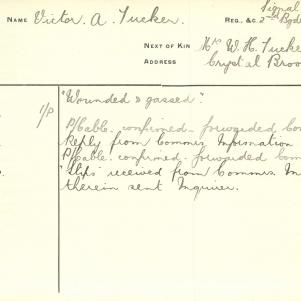 Signal
NAME Victor. A. Tucker. REG. &C. 2nd Bgde
NEXT OF KIN Mr W. H. Tucke
ADDRESS Crystal Broo
"Wounded & gassed".
1/P P/Cable. confirmed - forwarded Co
Reply from Commrs. Information
P/Cable. confirmed - forwarded Com
"Slips" received from Commrs. In
therein sent Inquirer.